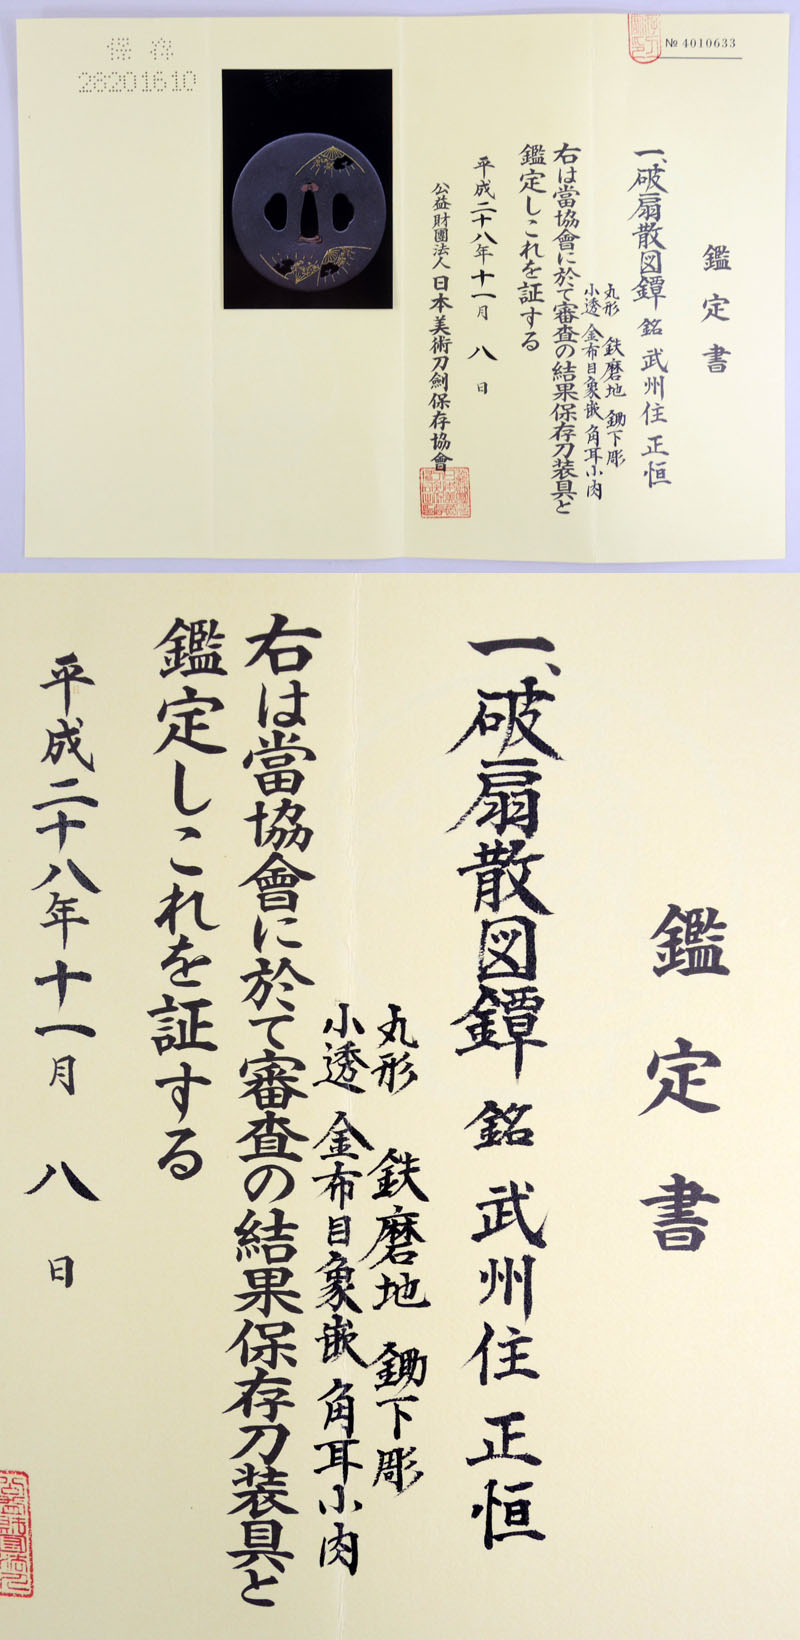 保存
28201610
№ 4010633
鑑定書
一、破扇散図鐔 銘 武州住正恒
丸形 鉄磨地 鋤下彫
小透 金布目象嵌 角耳小肉
右は當協會に於て審査の結果保存刀装具と
鑑定しこれを証する
平成二十八年十一月八日
公益財團法人日本美術刀劍保存協會
鑑定書
一、破扇散図鐔 銘 武州住正恒
丸形 鉄磨地 鋤下彫
小透 金布目象嵌 角耳小肉
右は當協會に於て審査の結果保存刀装具と
鑑定しこれを証する
平成二十八年十一月八日